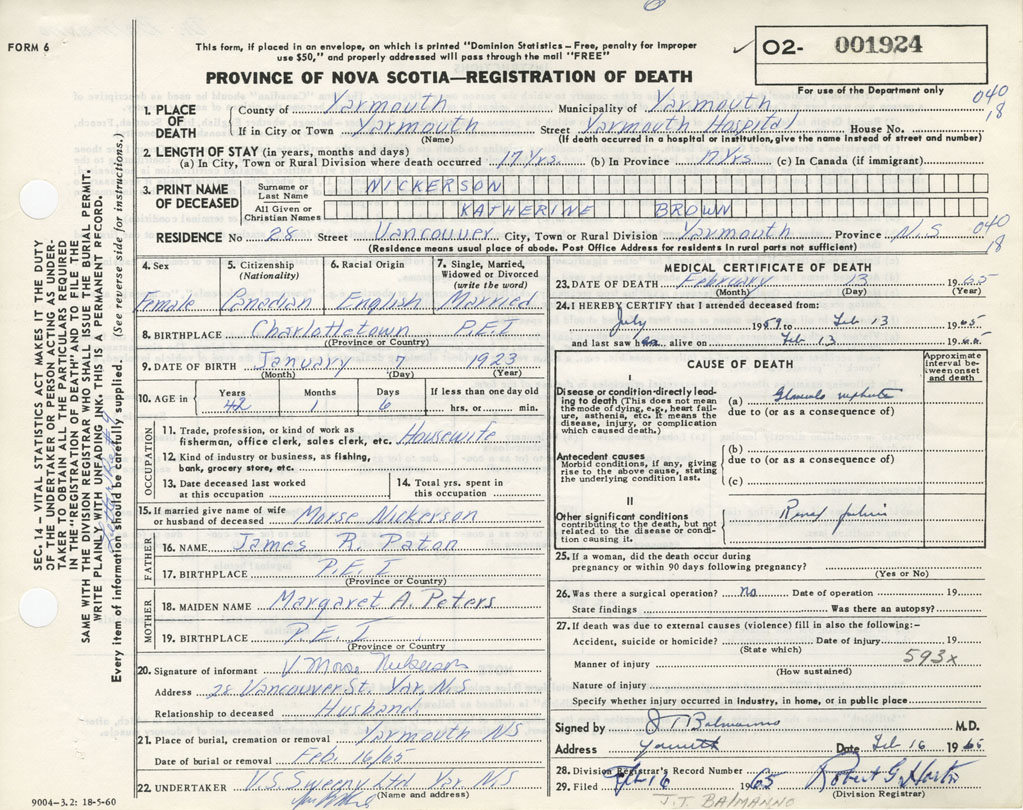 FORM 6
This form, if placed in an envelope, on which is printed "Dominion Statistics – Free, penalty for improper
use $50," and properly addressed will pass through the mail "FREE"
PROVINCE OF NOVA SCOTIA—REGISTRATION OF DEATH
✓ O2- 001924
For use of the Department only
040
18
1. PLACE OF DEATH County of Yarmouth Municipality of Yarmouth
If in City or Town Yarmouth Street Yarmouth Hospital House No.
(Name) (If death occurred in a hospital or institution, give the name instead of street and number)
2. LENGTH OF STAY (in years, months and days)
(a) In City, Town or Rural Division where death occurred 17 Yrs. (b) In Province 17 Yrs (c) In Canada (if immigrant)
3. PRINT NAME OF DECEASED Surname or Last Name NICKERSON
All Given or Christian Names KATHERINE BROWN
RESIDENCE No 28 Street Vancouver City, Town or Rural Division Yarmouth Province N.S 040
18
(Residence means usual place of abode. Post Office Address for residents in rural parts not sufficient)
4. Sex
Female
5. Citizenship
(Nationality)
Canadian
6. Racial Origin
English
7. Single, Married, Widowed or Divorced
(write the word)
Married
8. BIRTHPLACE Charlottetown P.E.I
(Province or Country)
9. DATE OF BIRTH January 7 1923
(Month) (Day) (Year)
10. AGE in Years Months Days If less than one day old
42 1 6 hrs. or min.
OCCUPATION
11. Trade, profession, or kind of work as
fisherman, office clerk, sales clerk, etc. Housewife
12. Kind of industry or business, as fishing,
bank, grocery store, etc.
13. Date deceased last worked
at this occupation
14. Total yrs. spent in
this occupation
15. If married give name of wife
or husband of deceased Morse Nickerson
FATHER
16. NAME James R. Paton
17. BIRTHPLACE P.E.I
(Province or Country)
MOTHER
18. MAIDEN NAME Margaret A. Peters
19. BIRTHPLACE P.E.I
(Province or Country
20. Signature of informant V. Morse Nickerson
Address 28 Vancouver St. Yar. N.S
Relationship to deceased Husband
21. Place of burial, cremation or removal Yarmouth N/S
Date of burial or removal Feb. 16/65
22. UNDERTAKER V.S. Sweeny Ltd Yar N/S
(Name and address)
9004–3.2: 18-5-60
MEDICAL CERTIFICATE OF DEATH
23. DATE OF DEATH February 13 1965
(Month) (Day) (Year)
24. I HEREBY CERTIFY that I attended deceased from:
July 1959 to Feb 13 1965
and last saw her alive on Feb 13 19
CAUSE OF DEATH
Approximate interval between onset and death
I
Disease or condition directly leading to death (This does not mean the mode of dying, e.g., heart failure, asthenia, etc. It means the disease, injury, or complication which caused death.)
(a)
due to (or as a consequence of)
Antecedent causes
Morbid conditions, if any, giving rise to the above cause, stating the underlying condition last.
(b)
due to (or as a consequence of)
(c)
II
Other significant conditions
contributing to the death, but not related to the disease or condition causing it.
Renal failure
25. If a woman, did the death occur during
pregnancy or within 90 days following pregnancy?
(Yes or No)
26. Was there a surgical operation? no Date of operation 19
State findings Was there an autopsy?
27. If death was due to external causes (violence) fill in also the following:–
Accident, suicide or homicide? Date of injury 19
(State which)
593x
Manner of injury
(How sustained)
Nature of injury
Specify whether injury occurred in industry, in home, or in public place
Signed by J T Balmanno M.D.
Address Yarmouth Date Feb 16 1965
28. Division Registrar's Record Number
29. Filed Feb 16 1965 Robert G. 
(Division Registrar)
J.T. BALMANNO
SEC. 14 – VITAL STATISTICS ACT MAKES IT THE DUTY
OF THE UNDERTAKER OR PERSON ACTING AS UNDER-
TAKER TO OBTAIN ALL THE PARTICULARS REQUIRED
IN THE "REGISTRATION OF DEATH" AND TO FILE THE
SAME WITH THE DIVISION REGISTRAR WHO SHALL ISSUE THE BURIAL PERMIT.
WRITE PLAINLY WITH UNFADING INK. THIS IS A PERMANENT RECORD.
Every item of information should be carefully supplied. (See reverse side for instructions.)